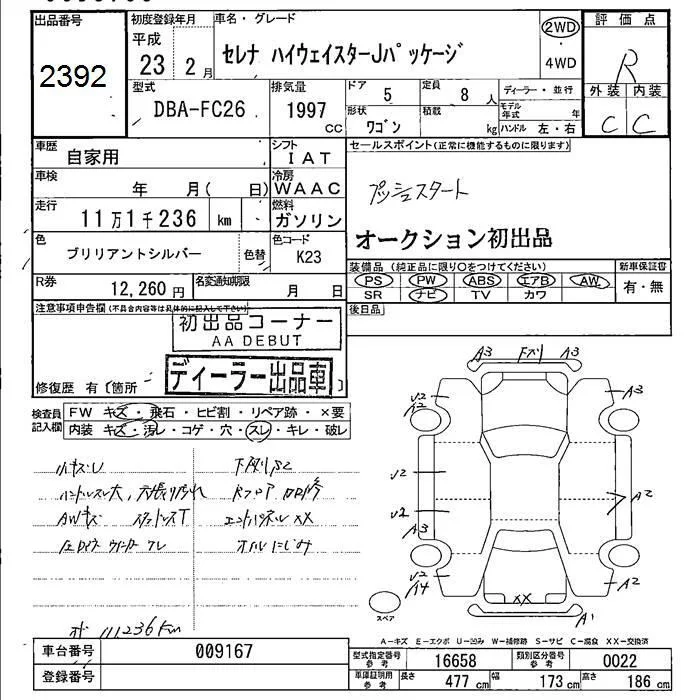 出品番号
2392
初度登録年月
平成
23 2月
車名・グレード
セレナ ハイウェイスターJパッケージ
2WD
・
4WD
評価点
R
外装 内装
C C
型式
DBA-FC26
排気量
1997 cc
ドア
5
定員
8 人
形状
ワゴン
積載
kg
ディーラー・並行
モデル年式 年
ハンドル 左・右
車歴
自家用
シフト
IAT
車検
年 月( 日)
冷房
WAAC
走行
11万1千236 km
燃料
ガソリン
色
ブリリアントシルバー
色替
色コード
K23
R券
12,260円
名変通知期限
月 日
セールスポイント(正常に機能するものに限ります)
プッシュスタート
オークション初出品
装備品(純正品に限り○をつけてください)
PS PW ABS エアB AW
SR ナビ TV カワ
新車保証書
有・無
後日品
注意事項申告欄(不具合内容等は具体的に記入して下さい)
初出品コーナー
AA DEBUT
ディーラー出品車
修復歴 有〔箇所 〕
検査員記入欄
FW キズ・飛石・ヒビ割・リペア跡・×要
内装 キズ・汚レ・コゲ・穴・スレ・キレ・破レ
小キズU
下廻りS2
ハンドルスレ大,
AWキズ スタッドレスT
エンドパネルXX
オイルにじみ
111236Km
A3 下廻り A3
U2
A2
A3
U2
U2
A3
A2
U2
A4
A2
XX
A1
スペア
A-キズ E-エクボ U-凹み W-補修跡 S-サビ C-腐食 XX-交換済
車台番号
009167
登録番号
型式指定番号
参考
16658
類別区分番号
参考
0022
車庫証明用
参考
長さ
477 cm
幅
173 cm
高さ
186 cm